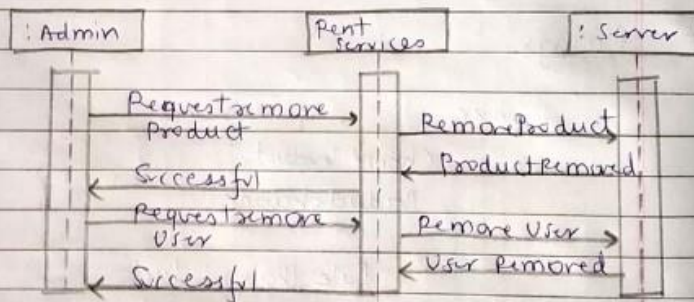 : Admin
Rent
Services
: Server
Request remove
product
Remove Product
Product Removed
Successful
Request remove
User
Remove User
User Removed
Successful